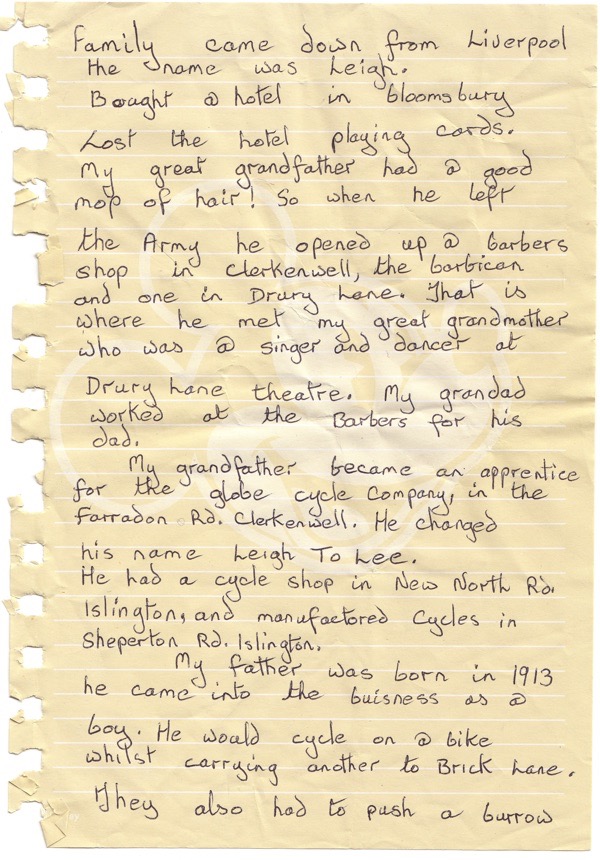 Family came down from Liverpool
the name was Leigh.
Bought a hotel in bloomsbury
Lost the hotel playing cards.
My great grandfather had a good
mop of hair! So when he left
the Army he opened up a barbers
shop in Clerkenwell, the barbican
and one in Drury Lane. That is
where he met my great grandmother
who was a singer and dancer at
Drury Lane theatre. My grandad
worked at the Barbers for his
dad.
My grandfather became an apprentice
for the globe cycle Company, in the
Farradon Rd. Clerkenwell. He changed
his name Leigh To Lee.
He had a cycle shop in New North Rd.
Islington, and manufactored Cycles in
Sheperton Rd. Islington.
My father was born in 1913
he came into the buisness as a
boy. He would cycle on a bike
whilst carrying another to Brick Lane.
They also had to push a burrow